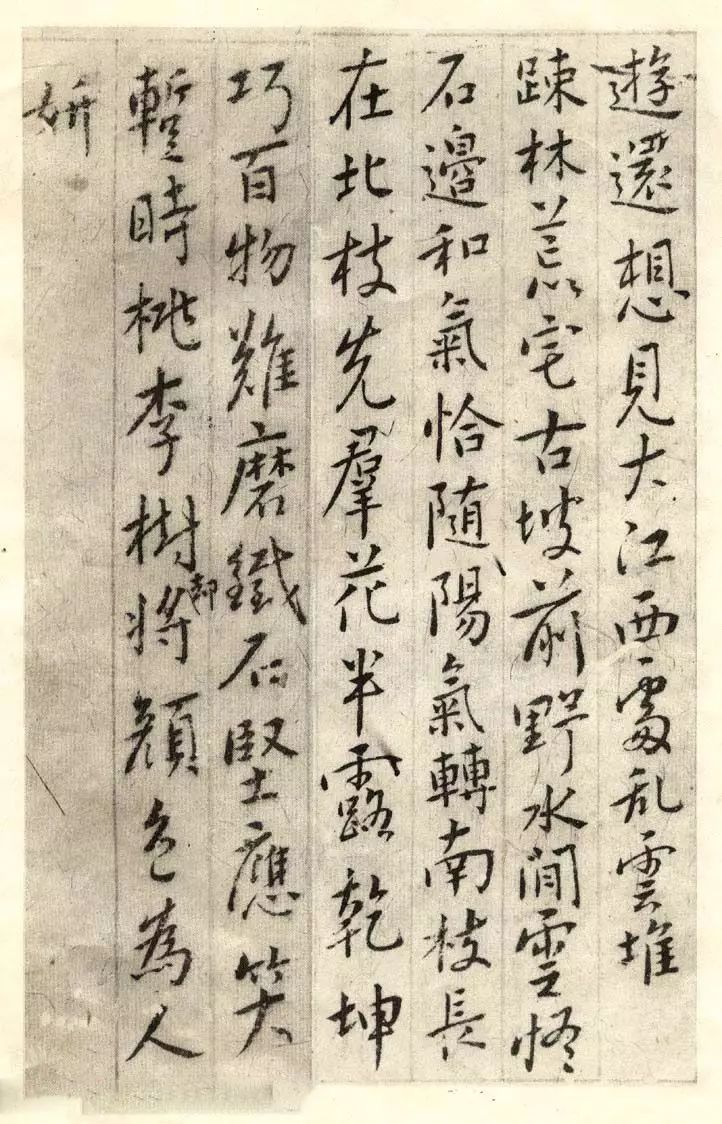 遊還想見大江西處乱雲堆
踈林荒宅古坡前野水閒雲怪
石邊和氣恰隨陽氣轉南枝長
在北枝先羣花半露乾坤
巧百物難磨鐵石堅應笑
暫時桃李樹却將顔色為人
妍